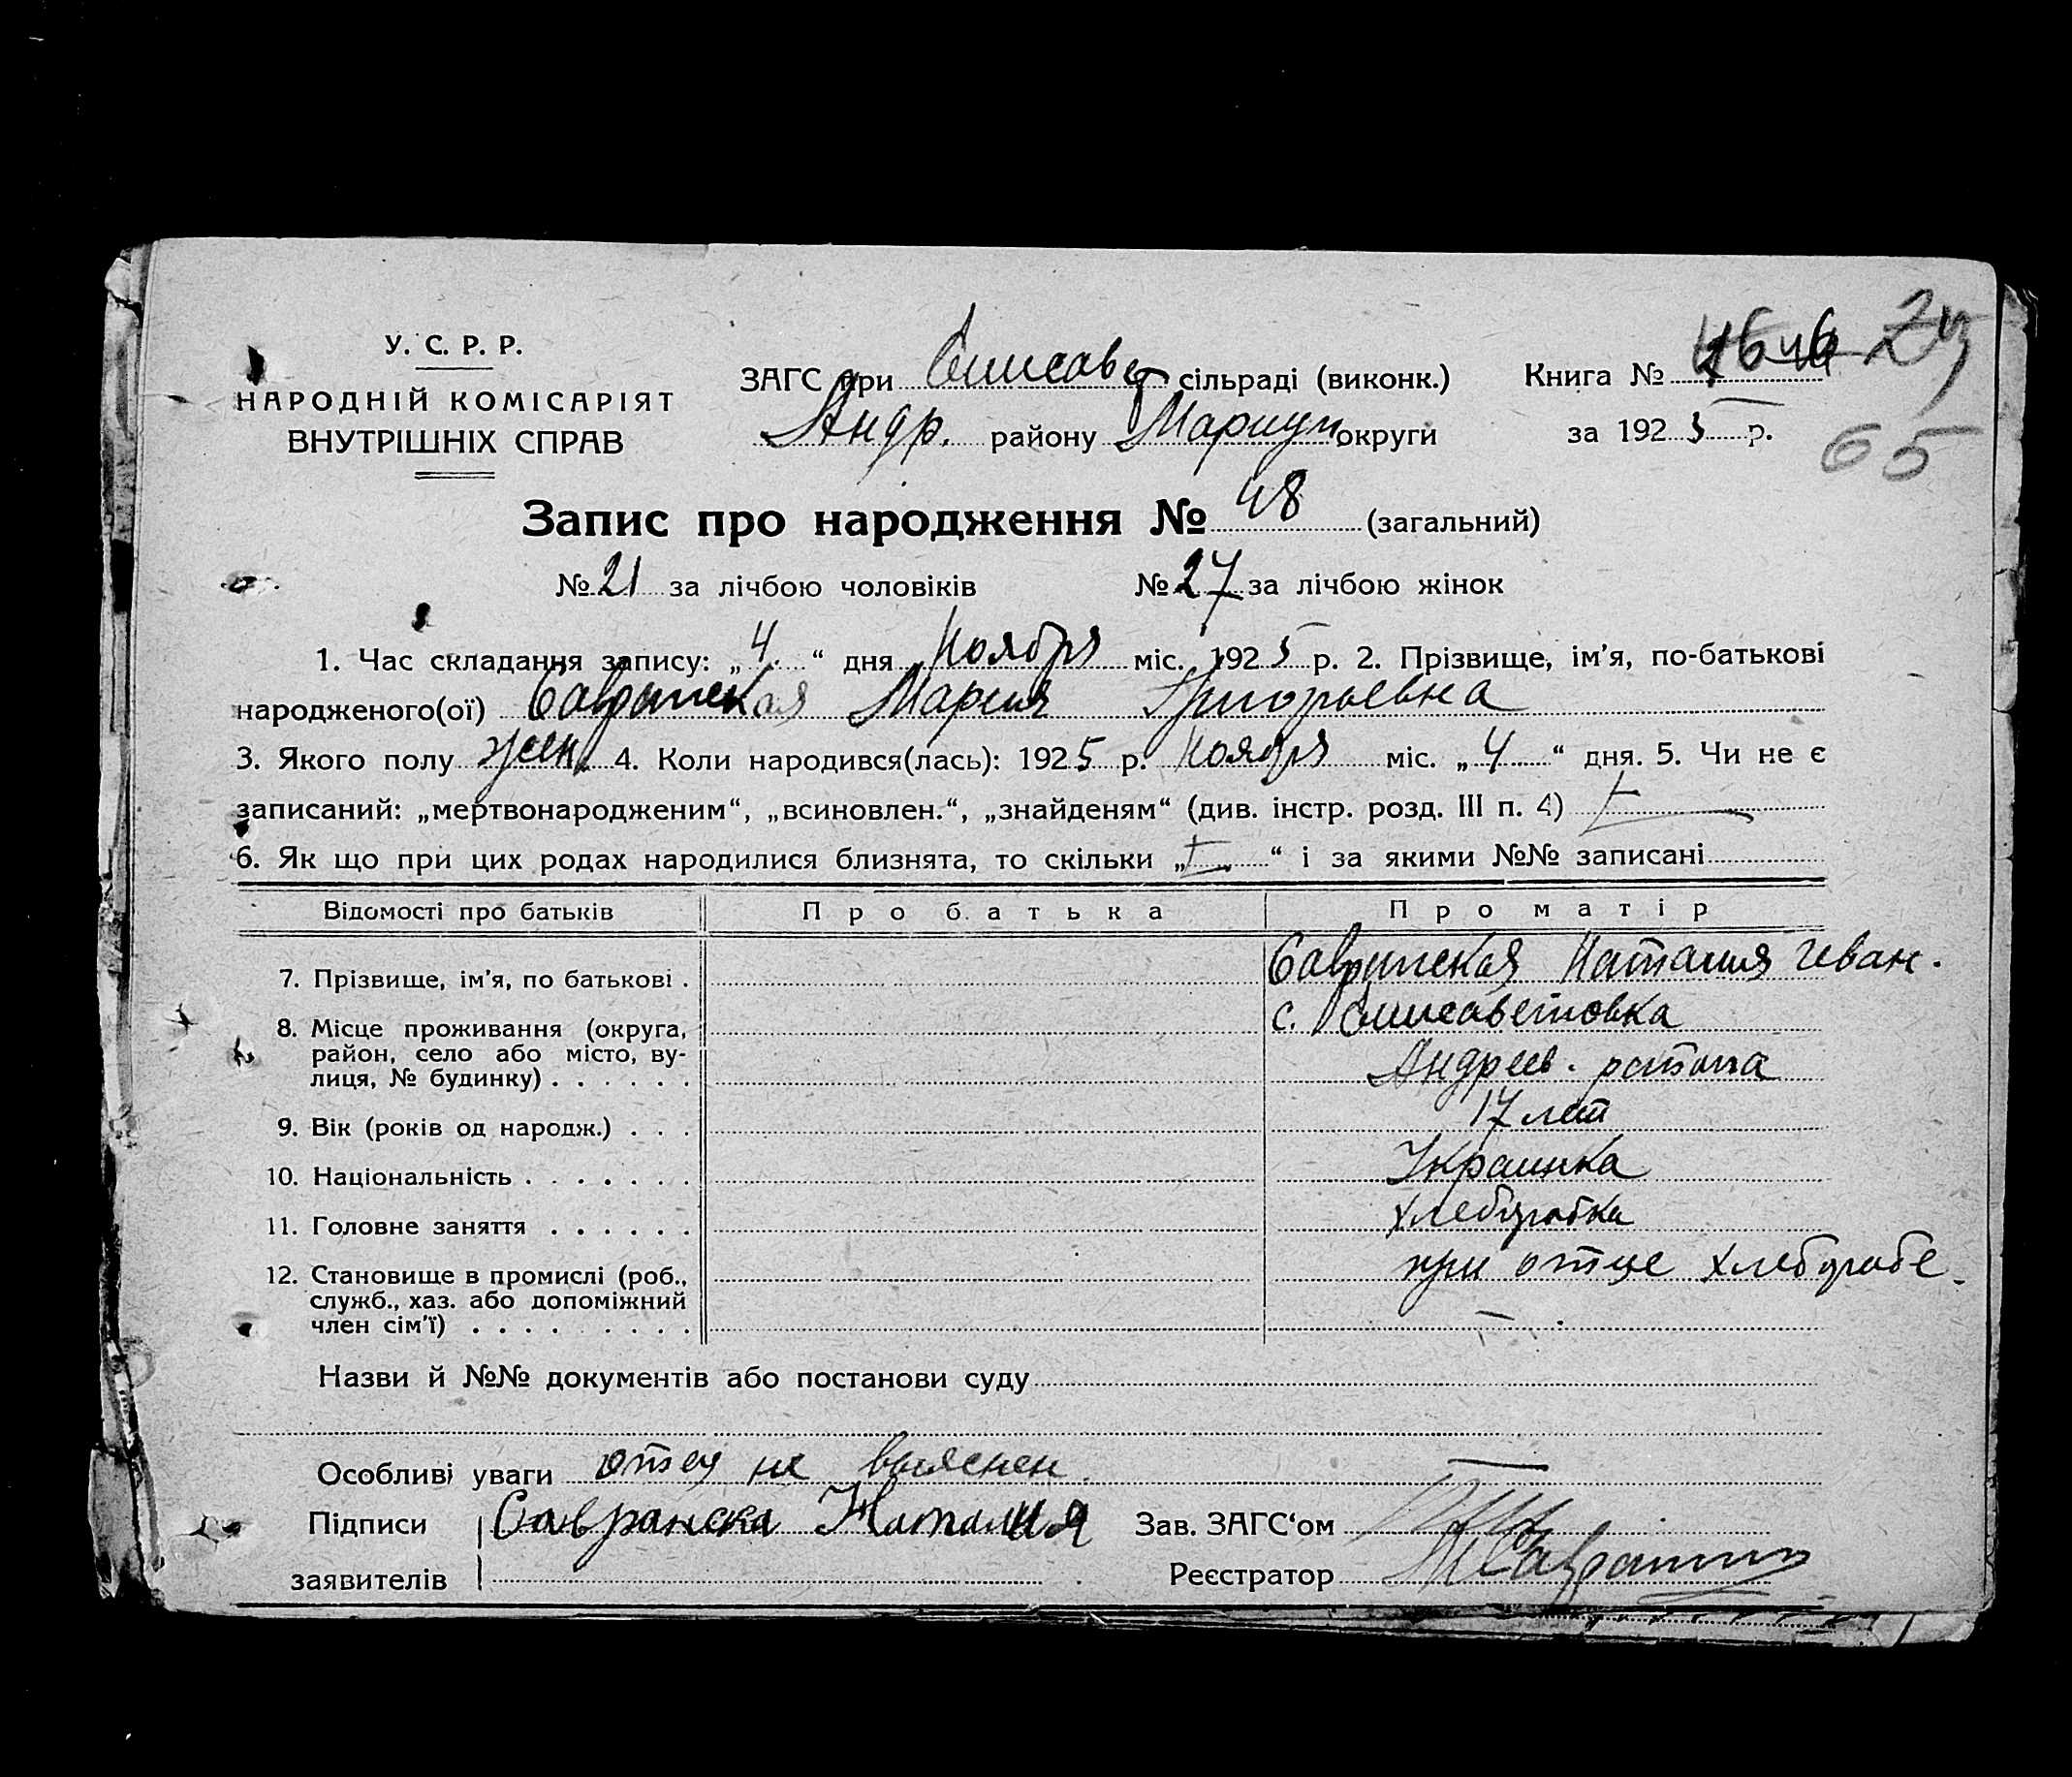 У. С. Р. Р.
НАРОДНІЙ КОМІСАРІЯТ
ВНУТРІШНІХ СПРАВ
ЗАГС при Елисавет сільраді (виконк.)
Андр. району Мариуп округи
Книга №
за 1925 р.
24
65
Запис про народження № 48 (загальний)
№ 21 за лічбою чоловіків № 27 за лічбою жінок
1. Час складання запису: „4“ дня Ноября міс. 1925 р. 2. Прізвище, ім’я, по-батькові
народженого(ої) Савранская Мария Григорьевна
3. Якого полу жен. 4. Коли народився(лась): 1925 р. Ноября міс. „4“ дня. 5. Чи не є
записаний: „мертвонародженим“, „всиновлен.“, „знайденям“ (див. інстр. розд. III п. 4)
6. Як що при цих родах народилися близнята, то скільки „ “ і за якими №№ записані
Відомості про батьків Про батька Про матір
7. Прізвище, ім’я, по батькові . Савранская Наталия Иван.
8. Місце проживання (округа, с. Елисаветовка
район, село або місто, ву-
лиця, № будинку) . . . . . . Андреев. района
9. Вік (років од народж.) . . . 17 лет
10. Національність . . . . . . . Украинка
11. Головне заняття . . . . . . хлеборобка
12. Становище в промислі (роб., при отце хлеборобе.
служб., хаз. або допоміжний
член сім’ї) . . . . . . . . .
Назви й №№ документів або постанови суду
Особливі уваги отец не выяснен.
Підписи Савранска Наталия Зав. ЗАГС‘ом
заявителів Реєстратор